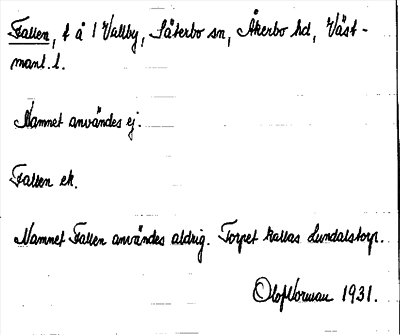 Fallen, t å 1 Vallby, Säterbo sn, Åkerbo hd, Väst-
manl. l.
Namnet användes ej.
Fallen ek.
Namnet Fallen användes aldrig. Torpet kallas Lundalstorp.
Olof Norman 1931.